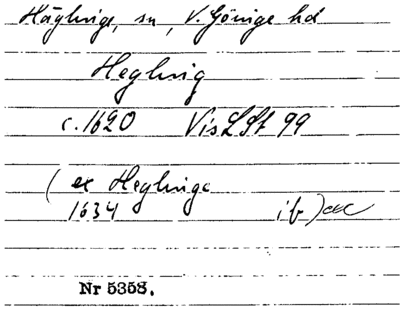 Häglinge, sn, V. Göinge hd
Heglinig
c. 1620 VisLSt 99
( ex Heglinge
1634 ib )
Nr 5358.